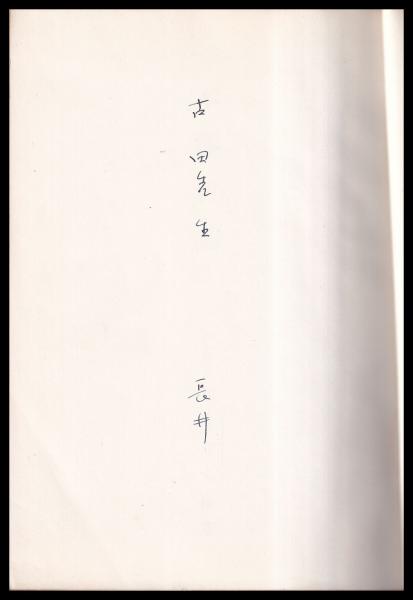 古田先生
長井